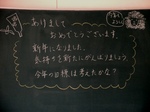 あけまして
おめでとうございます。
新年になりました。
気持ちを新たにがんばりましょう
今年の目標は考えたかな？